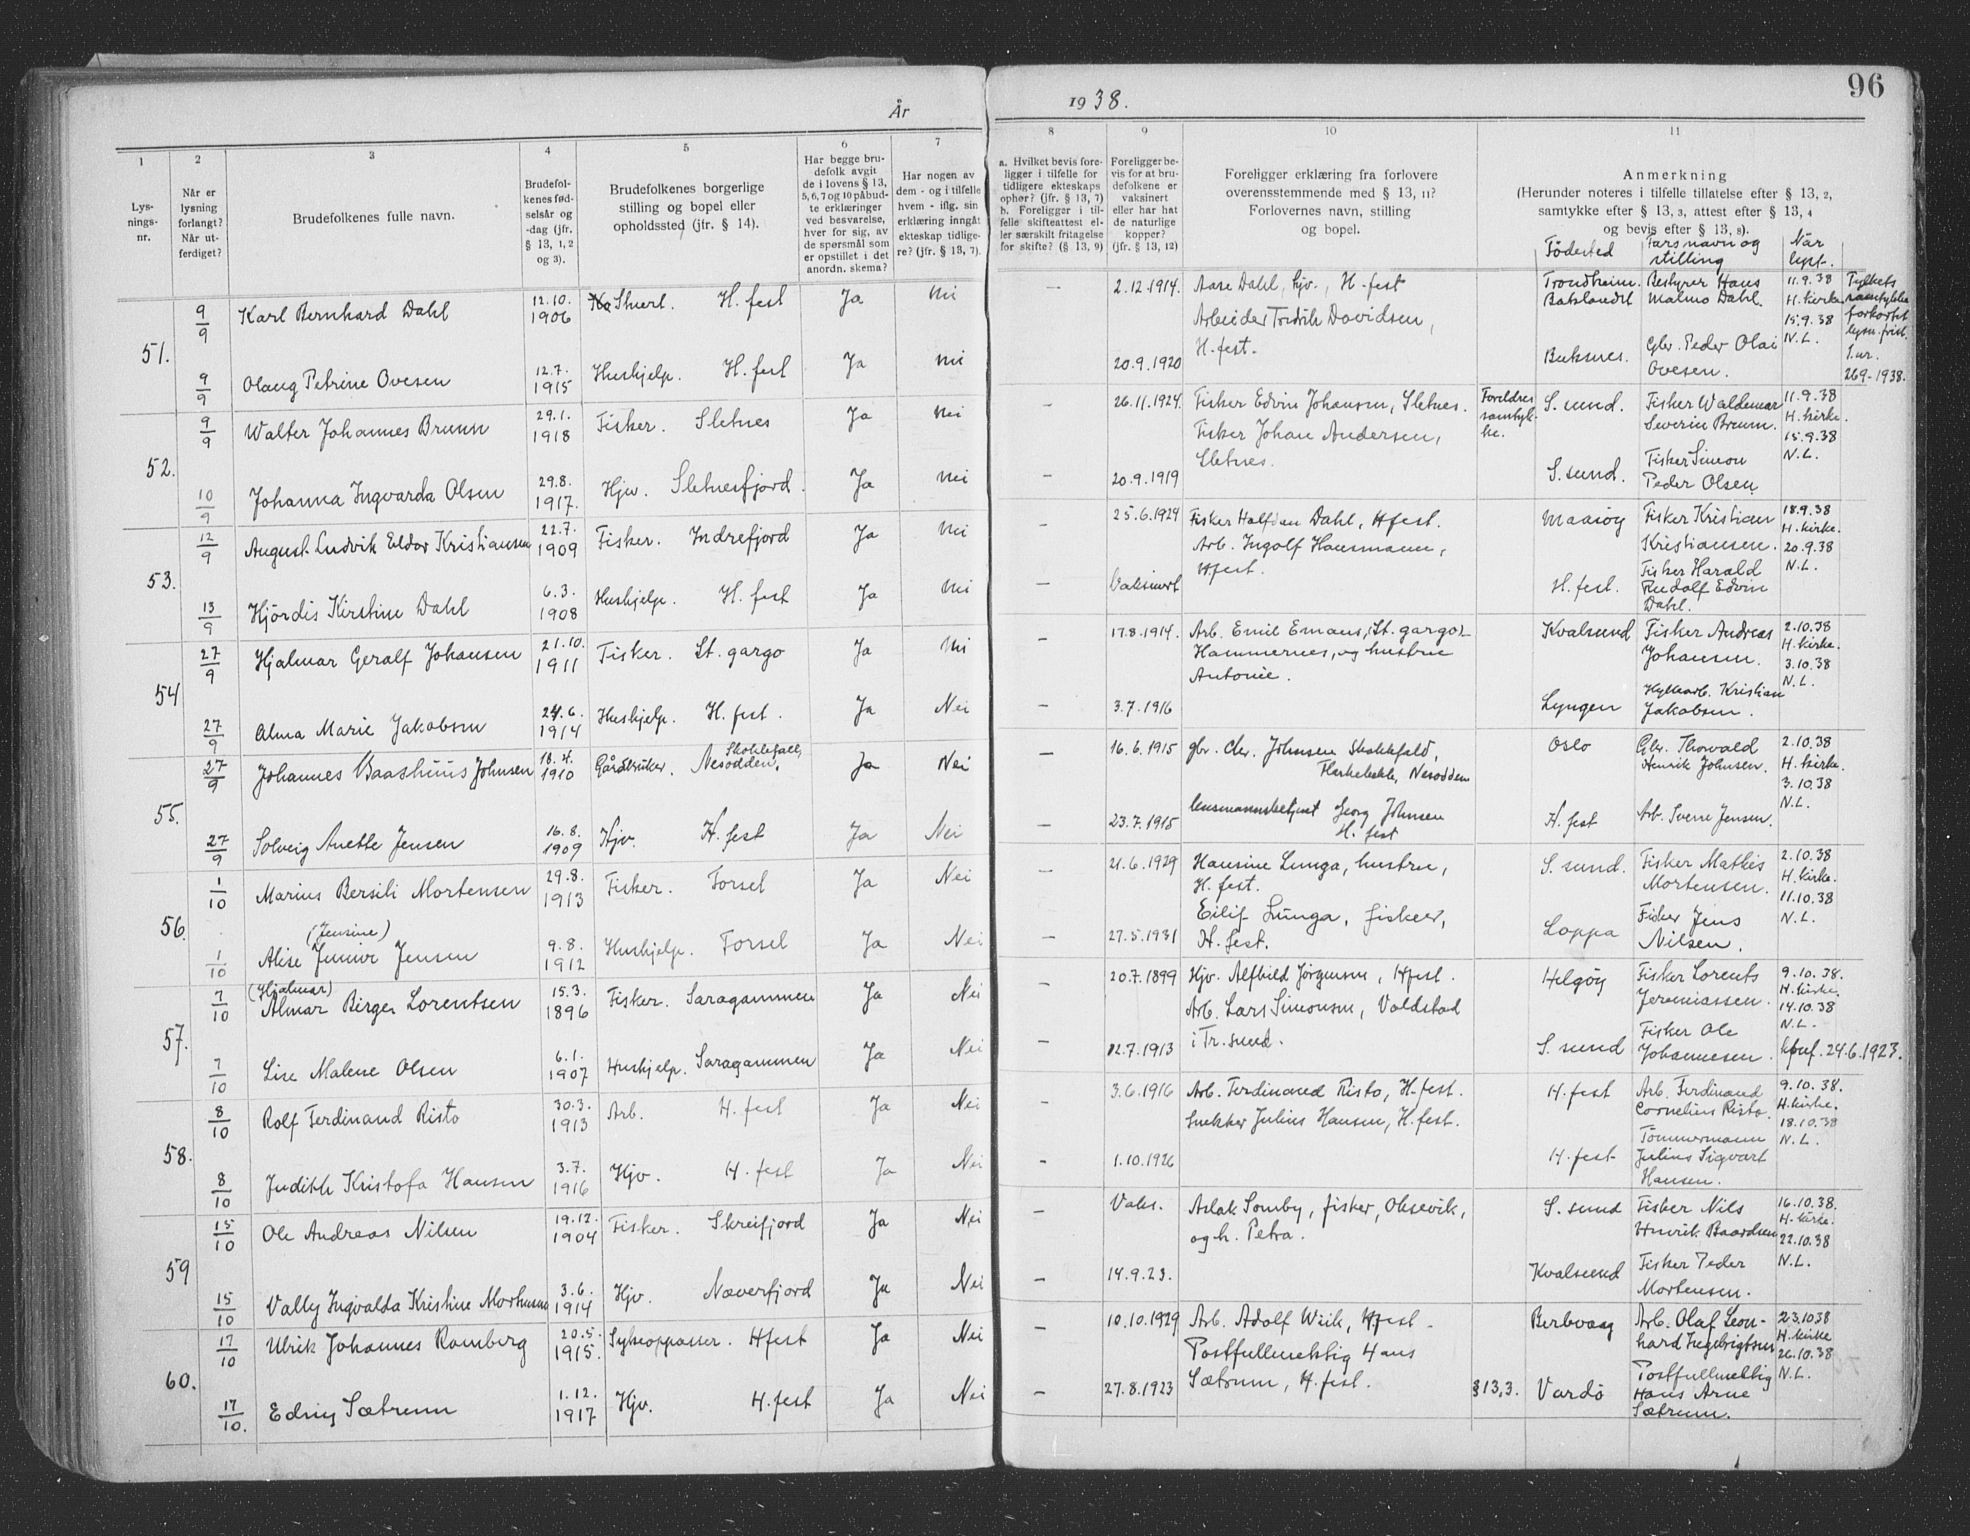 96
År 1938.
1 2 3 4 5 6 7 8 9 10 11
Lys-
nings-
nr.
Når er
lysning
forlangt?
Når ut-
ferdiget?
Brudefolkenes fulle navn.
Brudefol-
kenes fød-
selsår og
-dag (jfr.
§ 13, 1, 2
og 3).
Brudefolkenes borgerlige
stilling og bopel eller
opholdssted (jfr. § 14).
Har begge bru-
defolk avgit
de i lovens § 13,
5, 6, 7 og 10 påbud-
te erklæringer
ved besvarelse,
hver for sig, av
de spørsmål som
er opstillet i det
anordn. skema?
Har nogen av
dem - og i tilfelle
hvem - iflg. sin
erklæring inngått
ekteskap tidlige-
re? (jfr. § 13, 7).
a. Hvilket bevis fore-
ligger i tilfelle for
tidligere ekteskaps
ophør? (jfr. § 13, 7)
b. Foreligger i til-
felle skifteattest el-
ler særskilt fritagelse
for skifte? (§ 13, 9)
Foreligger be-
vis for at bru-
defolkene er
vaksinert
eller har hat
de naturlige
kopper?
(jfr. § 13, 12)
Foreligger erklæring fra forlovere
overensstemmende med § 13, 11?
Forlovernes navn, stilling
og bopel.
Anmerkning
(Herunder noteres i tilfelle tillatelse efter § 13, 2,
samtykke efter § 13, 3, attest efter § 13, 4
og bevis efter § 13, 8).
Fødested Farsnavn og stilling Når lyst.
51.
9/9 Karl Bernhard Dahl 12.10. 1906 Ja Nei H. fest 2.12.1914. Aase Dahl, hjv., H. fest Trondheim. Bestyrer Hans Malmo Dahl. 11.9.38 H. kirke.
Arbeider Fredrik Davidsen, H. fest. 15.9.38 N.L. Fylkets samtykke forkortet lysn. frist 26.9-1938.
9/9 Olaug Petrine Ovesen 12.7. 1915 Hushjelp. H. fest Ja Nei 20.9.1920 Buksnes. Gbr. Peder Olai Ovesen.
52.
9/9 Walter Johannes Bruun 29.1. 1918 Fisker. Sletnes Ja Nei – 26.11.1924. Fisker Edvin Johansen, Sletnes. Foreldres samtykke. S. sund. Fisker Waldemar Severin Bruun. 11.9.38 H. kirke.
Fisker Johan Andersen, Sletnes. 15.9.38 N.L.
10/9 Johanna Ingvarda Olsen 29.8. 1917. Hjv. Sletnesfjord. Ja Nei – 20.9.1919 S. sund. Fisker Simon Peder Olsen.
53.
12/9 August Ludvik Eldor Kristiansen 22.7. 1909 Fisker. Indrefjord Ja Nei – 25.6.1924 Fisker Halfdan Dahl, Hfest. Maasøy Fisker Kristian Kristiansen. 18.9.38 H. kirke.
Arb. Ingolf Hansmann, Hfest. 20.9.38 N.L.
13/9 Hjördis Kirstine Dahl 6.3. 1908 Hushjelp. H. fest Ja Nei – Vaksinert H. fest. Fisker Harald Rudolf Edvin Dahl.
54
27/9 Hjalmar Geralf Johansen 21.10. 1911 Fisker. St. gargo Ja Nei – 17.8.1914. Arb. Emil Emaus, St. gargo- Kvalsund Fisker Andreas Johansen. 2.10.38 H. kirke.
Hammernes, og hustru Antonie. 3.10.38 N.L.
27/9 Alma Marie Jakobsen 24.6. 1914 Hushjelp. H. fest. Ja Nei – 3.7.1916 Lyngen Kristian Jakobsen.
55.
27/9 Johannes Baashuus Johnsen 18.4. 1910 Gårdbruker. Nesodden. Ja Nei – 16.6.1915 gbr. Chr. Johnsen Skokkefald, Nesodden Oslo Gbr. Thorvald Henrik Johnsen. 2.10.38 H. kirke.
3.10.38 N.L.
27/9 Solveig Anette Jensen 16.8. 1909 Hjv. H. fest Ja Nei – 23.7.1915 lensmannsbetjent Georg Johnsen H. fest H. fest Arb. Sverre Jensen.
56.
1/10 Marius Bersili Mortensen 29.8. 1913 Fisker. Forsøl Ja Nei – 21.6.1929 Hansine Lunga, hustru, H. fest. S. sund. Fisker Mathis Mortensen. 2.10.38 H. kirke.
Eilif Lunga, fisker, H. fest. 11.10.38 N.L.
1/10 Alise (Jensine) Jensen 9.8. 1912 Hushjelp. Forsøl Ja Nei – 27.5.1931 Loppa Fisker Jens Nilsen.
57.
7/10 (Hjalmar) Almar Birger Lorentsen 15.3. 1896 Fisker. Saragammen Ja Nei – 20.7.1899 Hjv. Alfhild Jørgensen, Hfest. Helgøy Fisker Lorents Jeremiassen. 9.10.38. H. kirke.
Arb. Lars Simonsen, Voldstad i Tr. sund. 14.10.38 N.L.
7/10 Lise Malene Olsen 6.1. 1907 Hushjelp. Saragammen Ja Nei – 12.7.1913 S. sund Fisker Ole Johannesen. konf. 24.6.1923.
58.
8/10 Rolf Ferdinand Risto 30.3. 1913 Arb. H. fest Ja Nei – 3.6.1916 Arb. Ferdinand Risto, H. fest. H. fest Arb. Ferdinand Cornelius Risto. 9.10.38. H. kirke.
Snekker Julius Hansen, H. fest. 18.10.38 N.L.
8/10 Judith Kristofa Hansen 3.7. 1916 Hjv. H. fest Ja Nei – 1.10.1926 H. fest Tømmermann Julius Sigvart Hansen.
59
15/10 Ole Andreas Nilsen 19.12. 1904 Fisker. Skreifjord Ja Nei – Vaks. Aslak Somby, fisker, Oksevik, og h. Petra. S. sund Fisker Nils Henrik Baardsen 16.10.38. H. kirke.
22.10.38 N.L.
15/10 Vally Ingvalda Kristine Mortensen 3.6. 1914 Hjv. Næverfjord Ja Nei – 14.9.23. Kvalsund Fisker Peder Mortensen.
60.
17/10 Ulrik Johannes Ramberg 20.5. 1915. Sykeoppasser. Hfest Ja Nei – 10.10.1929 Arb. Adolf Wiik, Hfest. Berlevaag Arb. Olaf Leonhard Ingebrigtsen 23.10.38 H. kirke
Postfullmektig Hans Sætrum, H. fest. 26.10.38 N.L.
17/10. Edny Sætrum 1.12. 1917 Hjv. H. fest Ja Nei – 27.8.1923 § 13,3. Vardø Postfullmektig Hans Arne Sætrum.